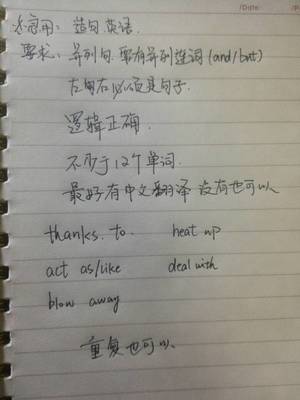 应用: 造句 英语.
要求: 并列句. 要有并列连词 (and/but)
左句右必须是句子.
逻辑正确.
不少于12个单词.
最好有中文翻译 没有也可以
thanks. to. heat up
act as/like deal with
blow away
重复也可以.